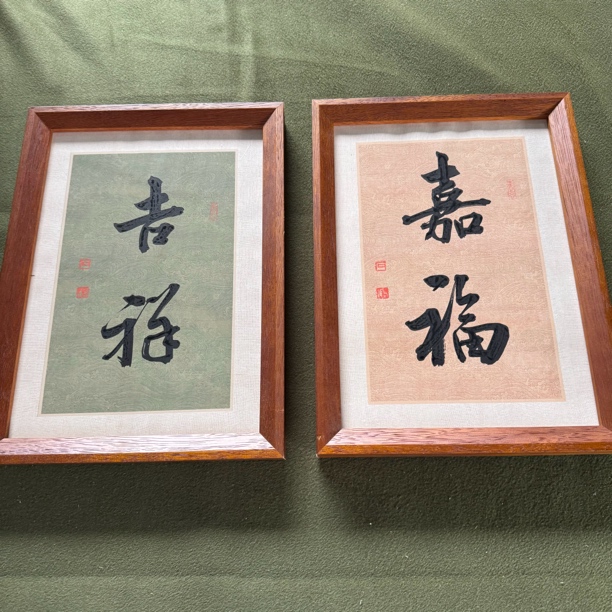 吉
祥
嘉
福